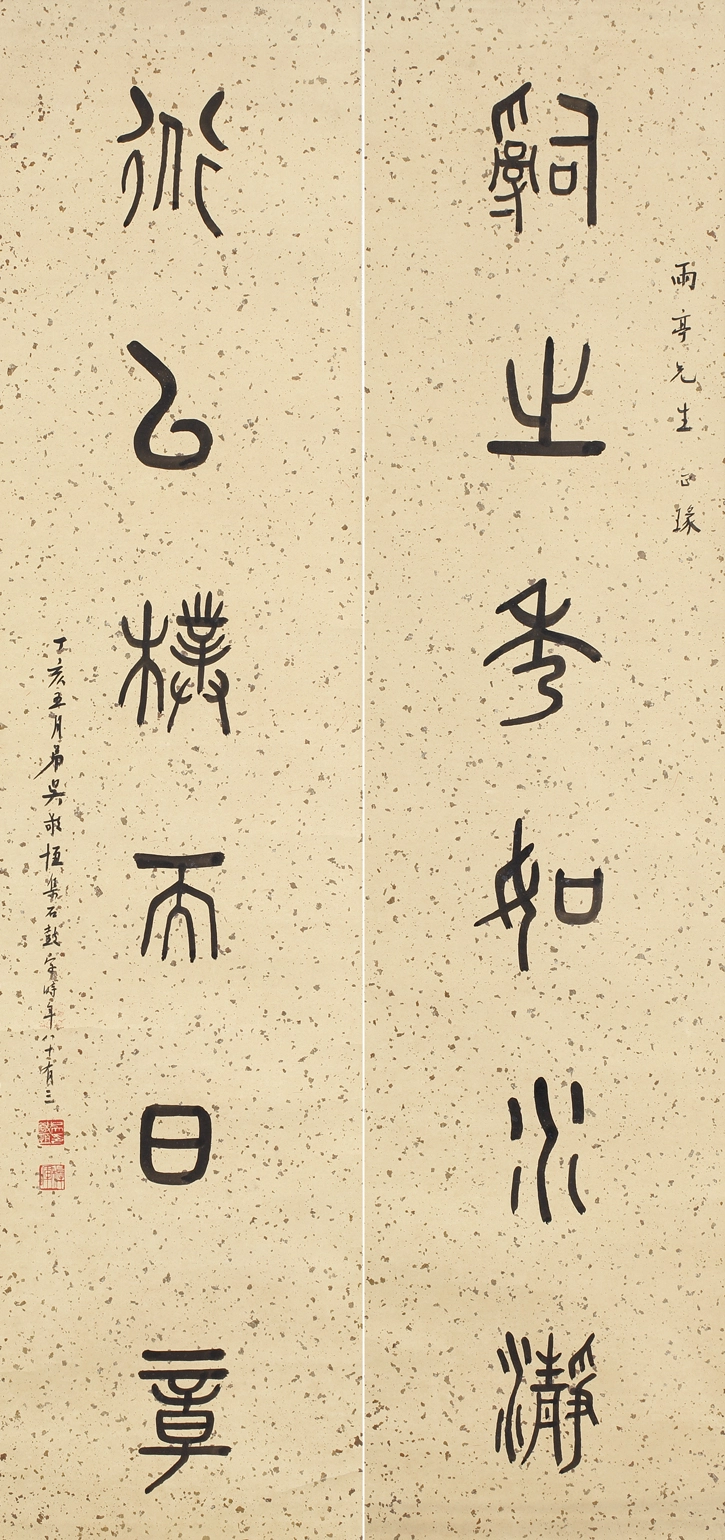 雨亭先生 正瑑
辭之秀如水瀞
術以樸而日章
丁亥五月弟吳敬恒集石鼓字時年八十有三